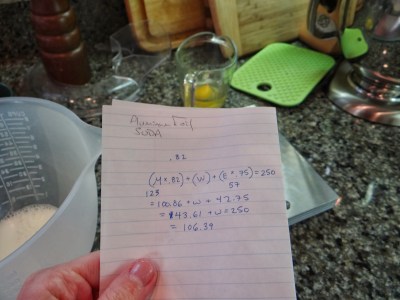 SODA
.82
(M * .82) + (W) + (E * .75) = 250
123 57
= 100.86 + w + 42.75
= 143.61 + w = 250
= 106.39